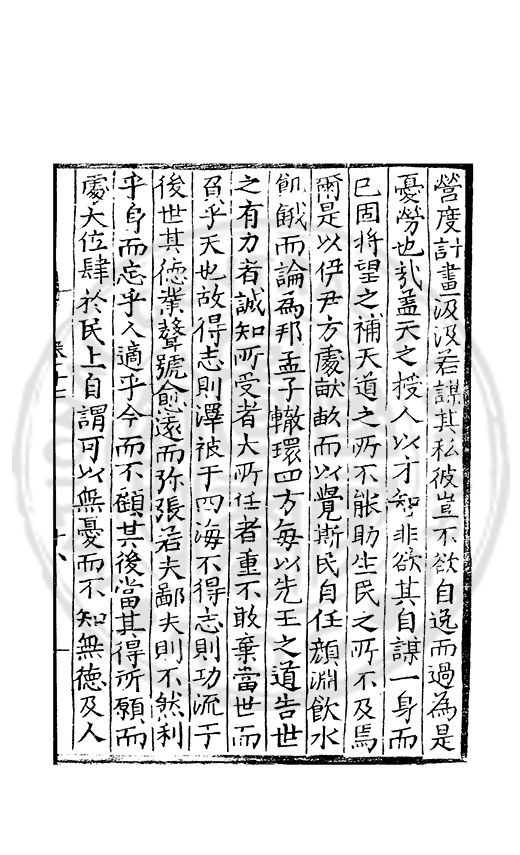 營度計畫汲汲若謀其私彼豈不欲自逸而過為是
憂勞也哉盖天之授人以才知非欲其自謀一身而
已固將望之補天道之所不能助生民之所不及焉
爾是以伊尹方處畎畝而以覺斯民自任顔淵飲水
飢餓而論為邦孟子轍環四方每以先王之道告世
之有力者誠知所受者大所任者重不敢棄當世而
負乎天也故得志則澤被于四海不得志則功流于
後世其徳業聲號愈遠而弥張若夫鄙夫則不然利
乎身而忘乎人適乎今而不顧其後當其得所願而
處大位肆於民上自謂可以無憂而不知無徳及人
十八